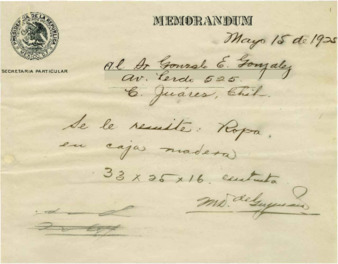 MEMORANDUM
SECRETARIA PARTICULAR
Mayo 15 de 1925
Al Sr Gonzalo E. Gonzalez
Av. Lerdo 525
C. Juárez, Chih.
Se le remite: Ropa,
en caja madera
33 x 25 x 16.
Ma. de Guzmán